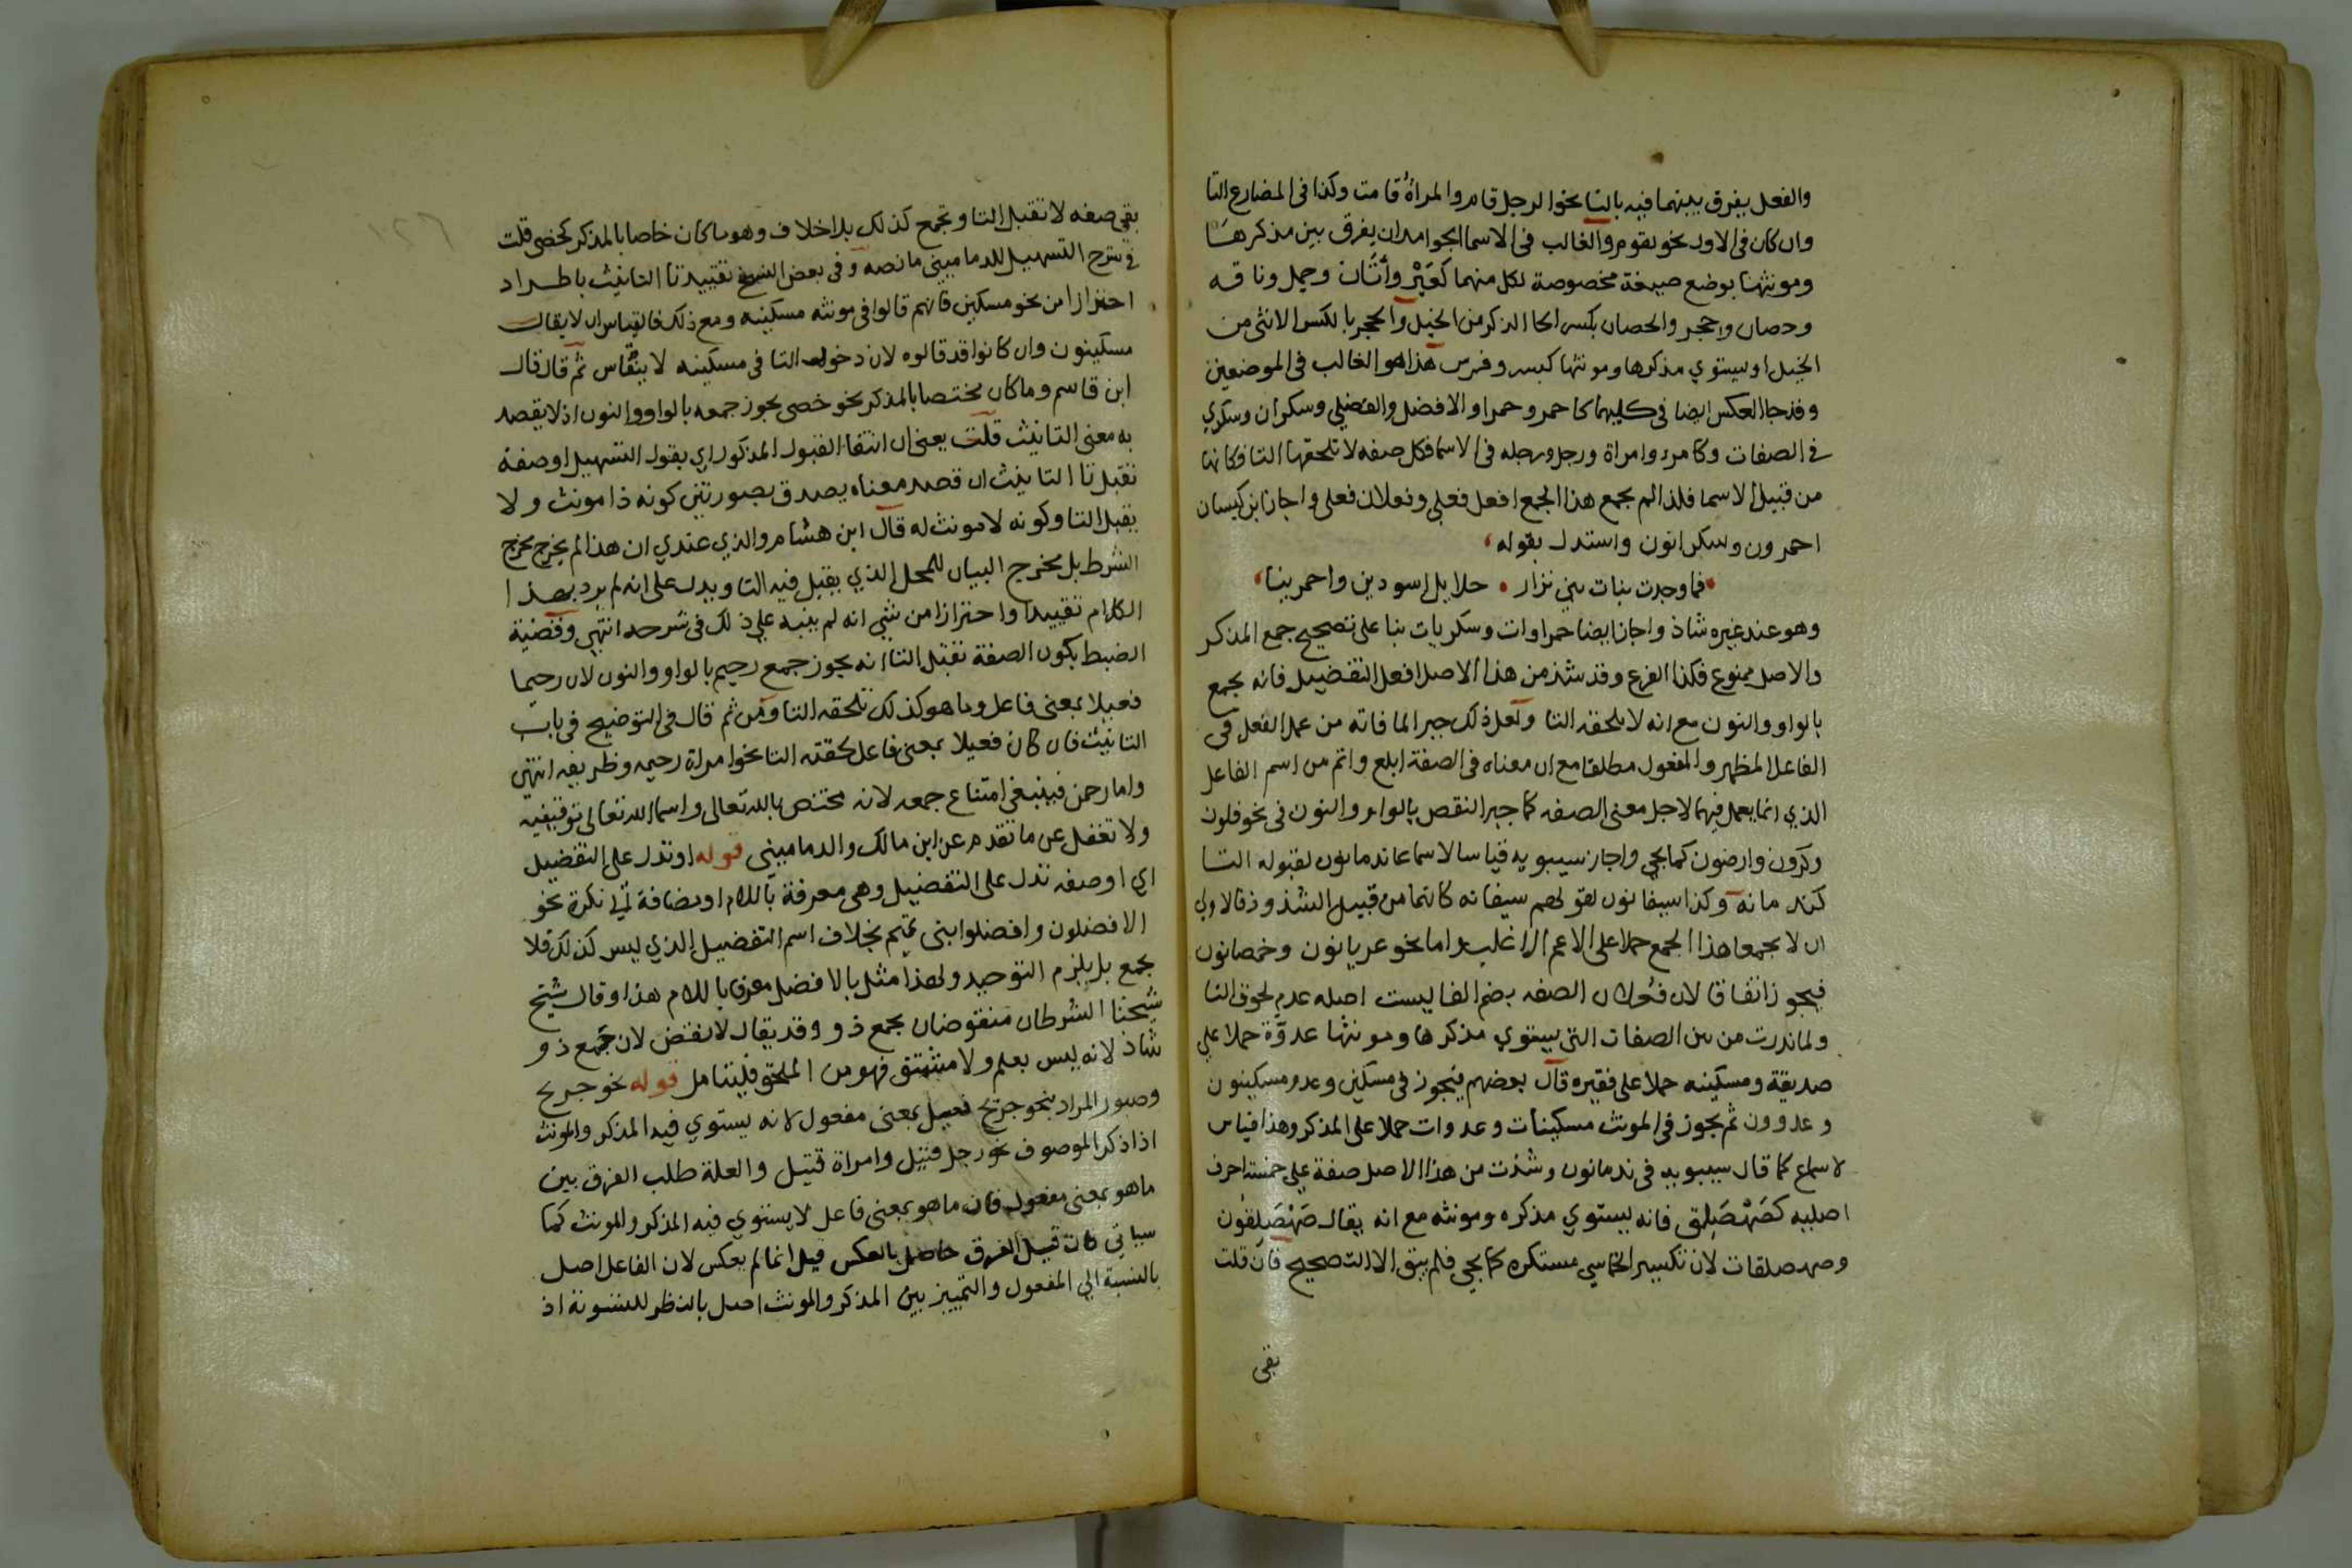 والفعل يفرق بينهما فيه بالتا نحو الرجل قام والمراة قامت وكذا في المضارع التا
وان كان في الاول نحو تقوم والغالب في الاسما الجوامد ان يفرق بين مذكرها
ومونثها بوضع صيغة مخصوصة لكل منهما كعَيْر وأتَان وجمل وناقه
وحصان وحجر والحصان بكسر الحا الذكر من الخيل والحجر بالكسر الانثى من
الخيل او يستوي مذكرها ومونثها كبشر وفرس هذا هو الغالب في الموضعين
وقد جا العكس ايضا في كليهما كاحمر وحمرا والافضل والفضلي وسكران وسكري
في الصفات وكامرء وامراة ورجل ورجله في الاسما فكل صفه لا تلحقها التا فكانها
من قبيل الاسما فلذا لم يجمع هذا الجمع افعل فعلي وفعلان فعلي واجاز ابن كيسان
احمرون وسكرانون واستدل بقوله
فما وجدت بنات بني نزار • حلايل اسودين واحمرينا
وهو عند غيره شاذ واجاز ايضا حمراوات وسكريات بنا على تصحيح جمع المذكر
والاصل ممنوع فكذا الفرع وقد شذ من هذا الاصل افعل التفضيل فانه يجمع
بالواو والنون مع انه لا يلحقه التا ولعل ذلك جبرا لما فاته من عمل الفعل في
الفاعل المظهر والمفعول مطلقا مع ان معناه في الصفة ابلغ واتم من اسم الفاعل
الذي انما يعمل فيهما لاجل معنى الصفه كما جبر النقص بالواو والنون في نحو قلون
وكرون وارضون كما يجي واجاز سيبويه قياسا لا سماعا ندمانون لقبوله التا
كندمانه وكذا سيفانون لقولهم سيفانه كانها من قبيل الشذوذ فالاولى
ان لا يجمعا هذا الجمع حملا على الاعم الاغلب واما نحو عريانون وخمصانون
فيجوز اتفاقا لان فُعلان الصفه بضم الفا ليست اصله عدم لحوق التا
ولما ندرت من بين الصفات التي يستوي مذكرها ومونثها عدوّة حملا على
صديقة ومسكينه حملا على فقيره قال بعضهم فيجوز في مسكين وعدو مسكينون
وعدوون ثم يجوز في المونث مسكينات وعدوات حملا على المذكر وهذا قياس
لا سماع كما قال سيبويه في ندمانون وشذت من هذا الاصل صفة على خمسة احرف
اصليه كصَهْصَلِق فانه يستوي مذكره ومونثه مع انه يقال صَهْصَلِقون
وصهصلقات لان تكسير الخماسي مستكره كما يجي فلم يبق الا التصحيح فان قلت
بقي
بقي صفه لا تقبل التا وتجمع كذلك بلا خلاف وهو ما كان خاصا بالمذكر كخصي قلت
في شرح التسهيل للدماميني ما نصه وفي بعض النسخ تقييد تا التانيث باطراد
احترازا من نحو مسكين فانهم قالوا في مونثه مسكينه ومع ذلك فالقياس ان لا يقال
مسكينون وان كانوا قد قالوه لان دخول التا في مسكينه لا ينقاس ثم قال قال
ابن قاسم وما كان مختصا بالمذكر نحو خصي يجوز جمعه بالواو والنون اذ لا يقصد
به معنى التانيث قلت يعني ان انتفا القبول المذكور اي بقول التسهيل او صفة
تقبل تا التانيث ان قصد معناه يصدق بصورتين كونه ذا مونث ولا
يقبل التا وكونه لا مونث له قال ابن هشام والذي عندي ان هذا لم يخرج مخرج
الشرط بل مخرج البيان للمحل الذي يقبل فيه التا ويدل على انه لم يرد بهذا
الكلام تقييدا واحترازا من شي انه لم ينبه على ذلك في شرحه انتهى وقضية
الضبط بكون الصفة تقبل التا انه يجوز جمع رحيم بالواو والنون لان رحيما
فعيلا بمعنى فاعل وما هو كذلك تلحقه التا ومن ثم قال في التوضيح في باب
التانيث فان كان فعيلا بمعنى فاعل لحقته التا نحو امراة رحيمه وظريفه انتهى
واما رحمن فينبغي امتناع جمعه لانه مختص بالله تعالى واسما الله تعالى توقيفيه
ولا تغفل عن ما تقدم عن ابن مالك والدماميني قوله او تدل على التفضيل
اي او صفه تدل على التفضيل وهي معرفة باللام او مضافة الى نكرة نحو
الافضلون وافضلوا بني تميم بخلاف اسم التفضيل الذي ليس كذلك فلا
يجمع بل يلزم التوحيد ولهذا مثل بالافضل معرفا باللام هذا وقال شيخ
شيخنا الشرطان منقوضان بجمع ذو وقد يقال لا نقض لان جمع ذو
شاذ لانه ليس بعلم ولا مشتق فهو من الملحق فليتامل قوله نحو جريح
وصبور المراد بنحو جريح فعيل بمعنى مفعول لانه يستوي فيه المذكر والمونث
اذا ذكر الموصوف نحو رجل قتيل وامراة قتيل والعلة طلب الفرق بين
ما هو بمعنى مفعول فان ما هو بمعنى فاعل لا يستوي فيه المذكر والمونث كما
سياتي فان قيل الفرق حاصل بالعكس قيل انما لم يعكس لان الفاعل اصل
بالنسبة الى المفعول والتمييز بين المذكر والمونث اصل بالنظر للتسوية اذ